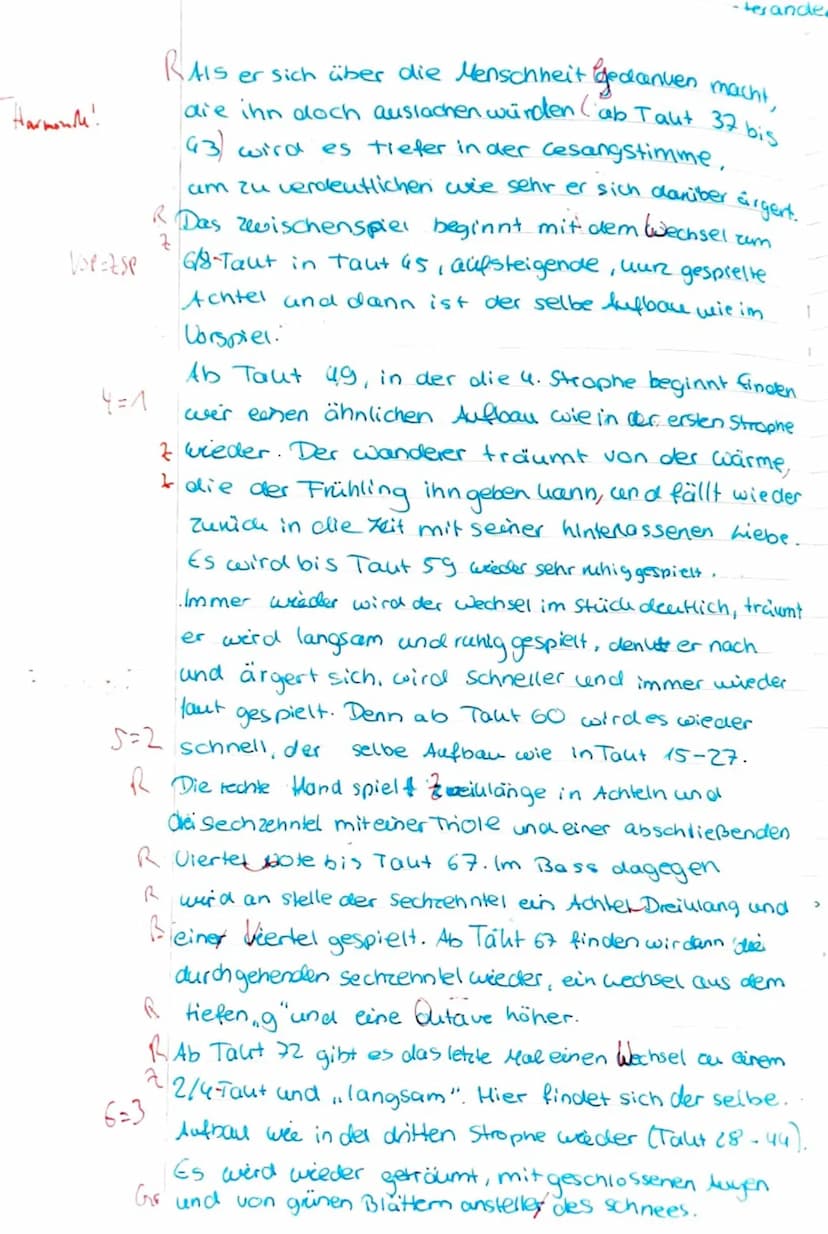 -terander
R Als er sich über die Menschheit Gedanken macht,
Harmonik! die ihn doch auslachen würden (ab Takt 37 bis
43) wird es tiefer in der Gesangstimme,
um zu verdeutlichen wie sehr er sich darüber ärgert.
R Das Zwischenspiel beginnt mit dem Wechsel zum
Z
VSP=ZSP 6/8-Takt in Takt 45, aufsteigende, kurz gespielte
Achtel und dann ist der selbe Aufbau wie im
Vorspiel.
Ab Takt 49, in der die 4. Strophe beginnt finden
4=1 wir einen ähnlichen Aufbau wie in der ersten Strophe
Z wieder. Der Wanderer träumt von der Wärme,
Z die der Frühling ihn geben kann, und fällt wieder
zurück in die Zeit mit seiner hinterassenen Liebe.
Es wird bis Takt 59 wieder sehr ruhig gespielt.
Immer wieder wird der Wechsel im Stück deutlich, träumt
er wird langsam und ruhig gespielt, denkt er nach
und ärgert sich, wird schneller und immer wieder
laut gespielt. Denn ab Takt 60 wird es wieder
5=2 schnell, der selbe Aufbau wie in Takt 15-27.
R Die rechte Hand spielt Zweiklänge in Achteln und
drei Sechzehntel mit einer Triole und einer abschließenden
R Viertel Note bis Takt 67. Im Bass dagegen
R wird an stelle der Sechzehntel ein Achtel Dreiklang und
B einer Viertel gespielt. Ab Takt 67 finden wir dann die
durchgehenden Sechzehntel wieder, ein Wechsel aus dem
R tiefen „g" und eine Oktave höher.
R Ab Takt 72 gibt es das letzte Mal einen Wechsel zu einem
Z 2/4-Takt und „langsam". Hier findet sich der selbe
6=3 Aufbau wie in der dritten Strophe wieder (Takt 28-44).
Es wird wieder geträumt, mit geschlossenen Augen
Gr und von grünen Blättern anstelle des Schnees.